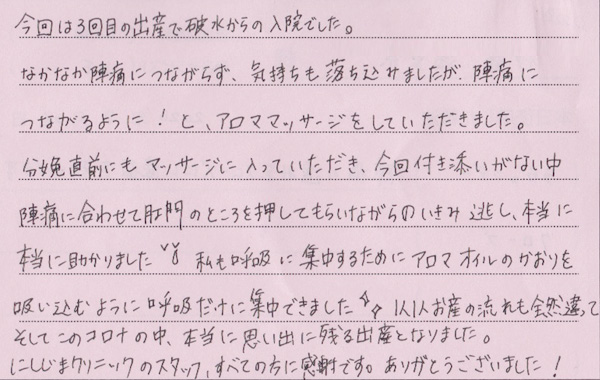 今回は3回目の出産で破水からの入院でした。
なかなか陣痛につながらず、気持ちも落ち込みましたが、陣痛に
つながるように!と、アロママッサージをしていただきました。
分娩直前にもマッサージに入っていただき、今回付き添いがない中
陣痛に合わせて肛門のところを押してもらいながらのいきみ逃し、本当に
本当に助かりました 私も呼吸に集中するためにアロマオイルのかおりを
吸い込むように呼吸だけに集中できました 1人1人お産の流れも全然違って
そしてこのコロナの中、本当に思い出に残る出産となりました。
にしじまクリニックのスタッフ、すべての方に感謝です。ありがとうございました!